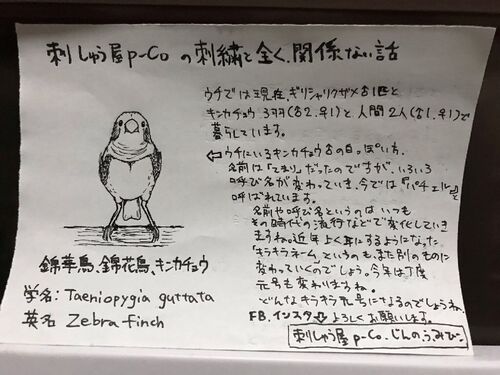 刺しゅう屋p-Coの刺繍と全く関係ない話
ウチでは現在、ギリシャリクガメ♂1匹と
キンカチョウ3羽(♂2.♀1)と人間2人(♂1.♀1)で
暮らしています。
⇦ウチにいるキンカチョウ♂の白っぽい方、
名前は「てまり」だったのですが、いろいろ
呼び名が変わっていき、今では『パチェル』と
呼ばれています。
名前や呼び名というのはいつも
その時代の流行などで変化していき
ますね。近年よく耳にするようになった
「キラキラネーム」というのも、また別のものに
変わっていくのでしょう。今年は丁度
元号も変わりますね。
どんなキラキラ元号になるのでしょうね。
FB.インスタ よろしくお願いします。
刺しゅう屋p-Co.じんのうみひこ
錦華鳥、錦花鳥、キンカチョウ
学名:Taeniopygia guttata
英名 Zebra finch